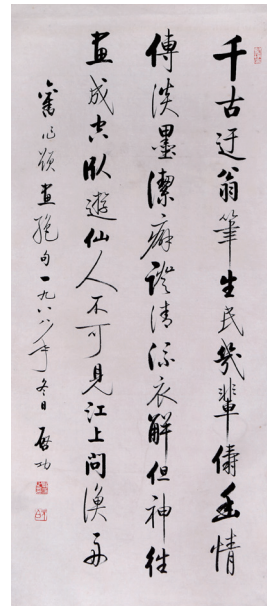 千古迂翁筆生民幾輩儔幽情
傳淡墨潔癖證清流衣解但神往
畫成空臥遊仙人不可見江上問漁舟
舊作題畫絕句一九八八年冬日 啟功